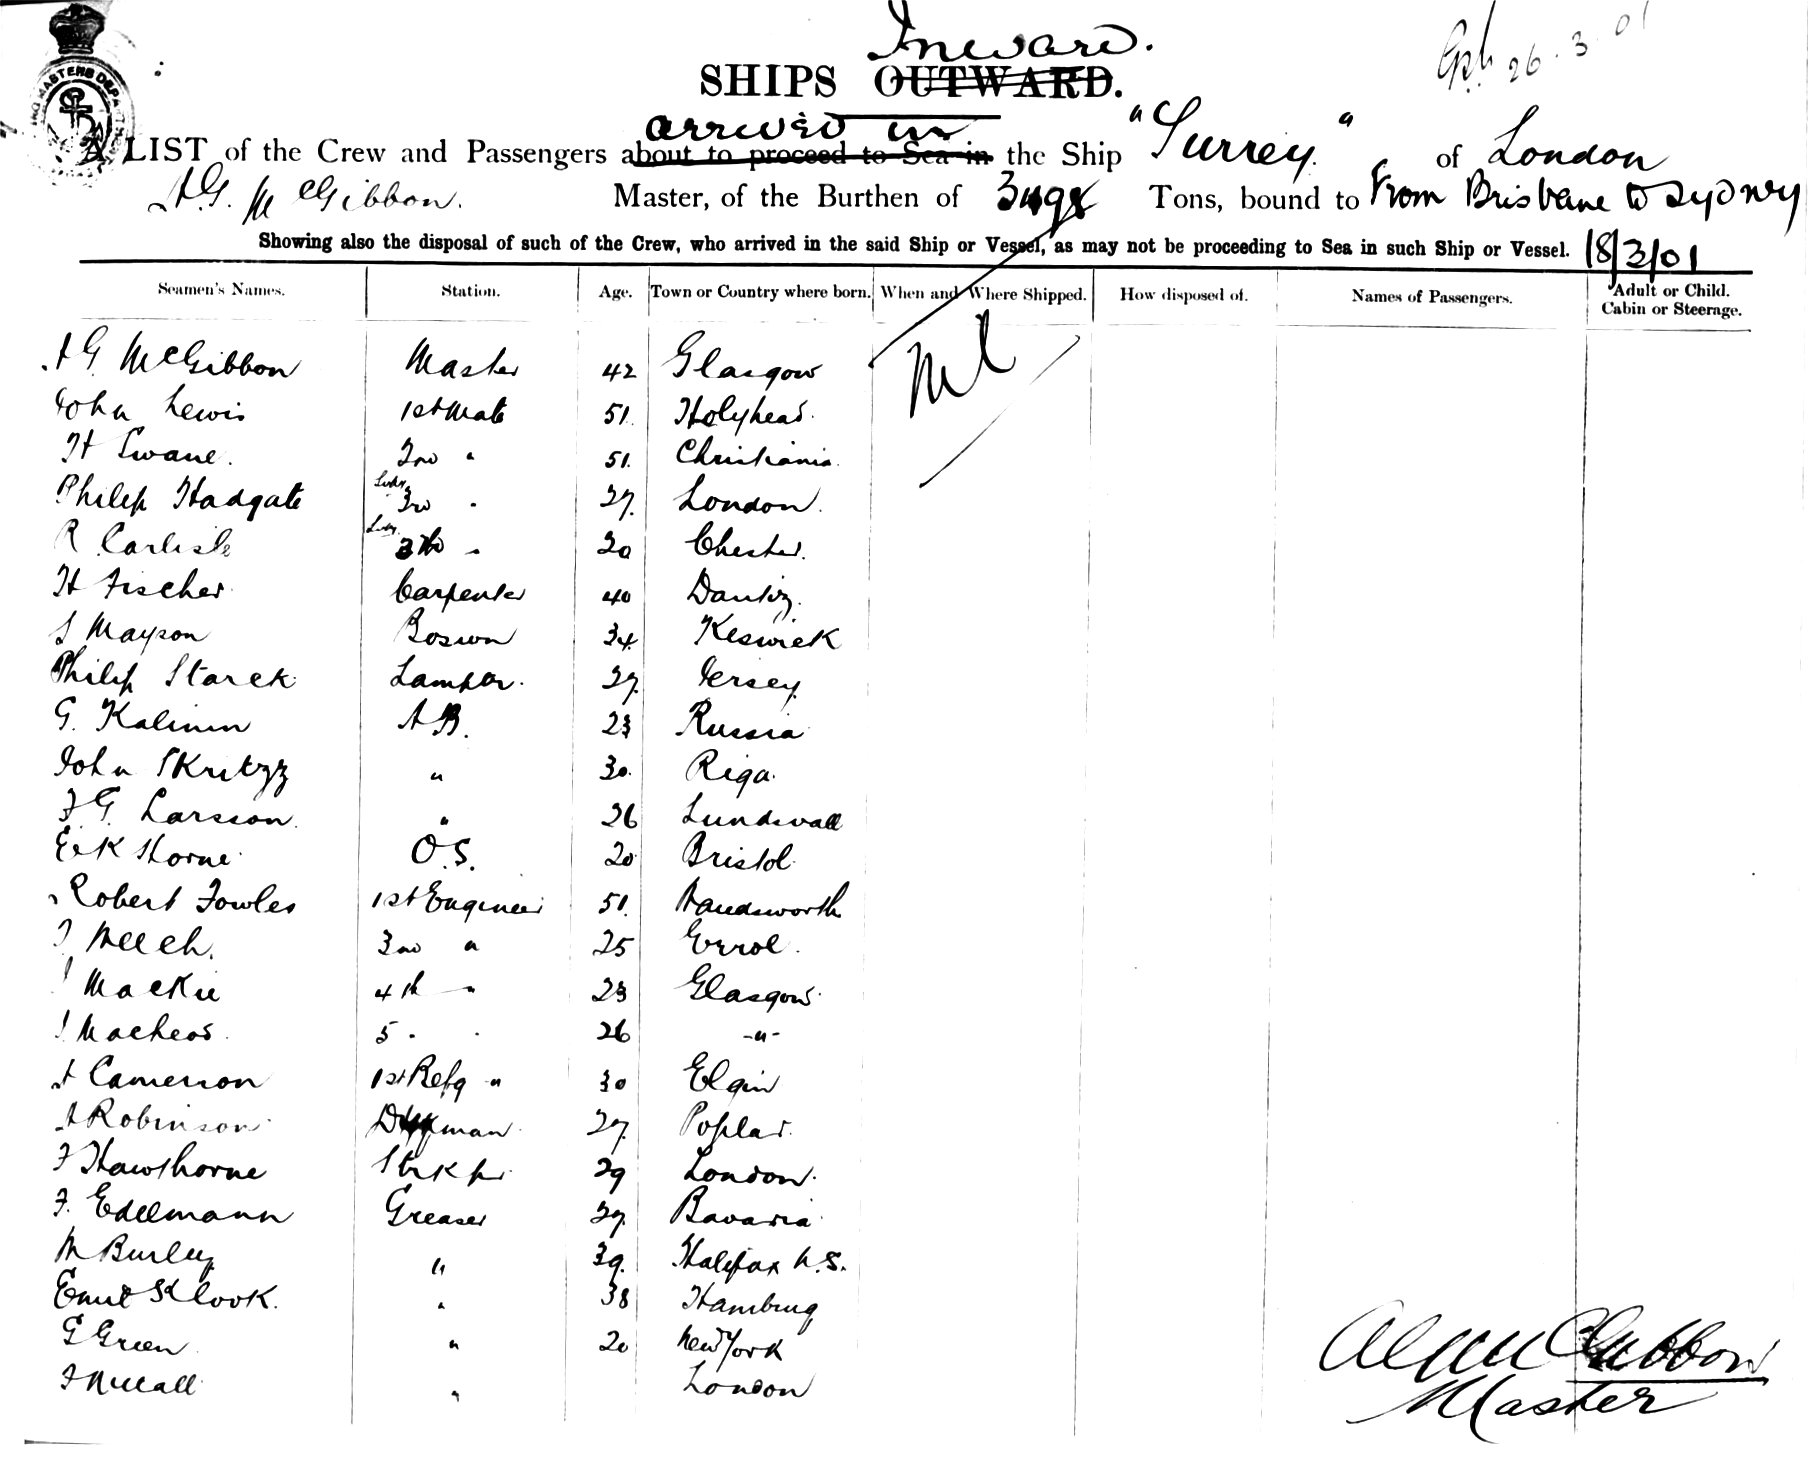 Inward.
26.3.01
SHIPS OUTWARD.
arrived in
A LIST of the Crew and Passengers about to proceed to Sea in the Ship "Surrey" of London
A.G. McGibbon. Master, of the Burthen of Tons, bound to From Brisbane to Sydney
Showing also the disposal of such of the Crew, who arrived in the said Ship or Vessel, as may not be proceeding to Sea in such Ship or Vessel. 18/3/01
Seamen's Names. Station. Age. Town or Country where born. When and Where Shipped. How disposed of. Names of Passengers. Adult or Child. Cabin or Steerage.
A G McGibbon Master 42 Glasgow
John Lewis 1st Mate 51. Holyhead.
H Swane. 2nd " 51. Christiania.
Philip Hadgate 3rd " 27. London.
R Carlisle " 20 Chester.
H Fischer Carpenter 40 Dantzig.
Mayson Bosun 34 Keswick
Philip Starck Lamper. 27. Jersey
G. Kalinin A B. 23 Russia
John Skritzz " 30. Riga.
F. G. Larsson " 26 Sundsvall
Thorne O.S. 20 Bristol
Robert Fowles 1st Engineer 51. Handsworth
Meech. 3rd " 25 Errol.
Mackie 4th " 23 Glasgow
Macleod 5 " 26 -"-
A Cameron 1st Refg " 30 Elgin
A Robinson 27. Poplar.
F Hawthorne Strkpr 29 London.
F. Edelmann Greaser 27. Bavaria
M Burley " 39. Halifax N.S.
Klook. " 38 Hamburg
G Green " 20 New York
F McCall " London
Master